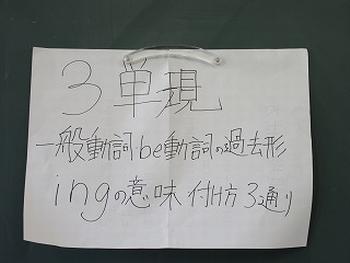 3単現
一般動詞be動詞の過去形
ingの意味 付け方 3通り